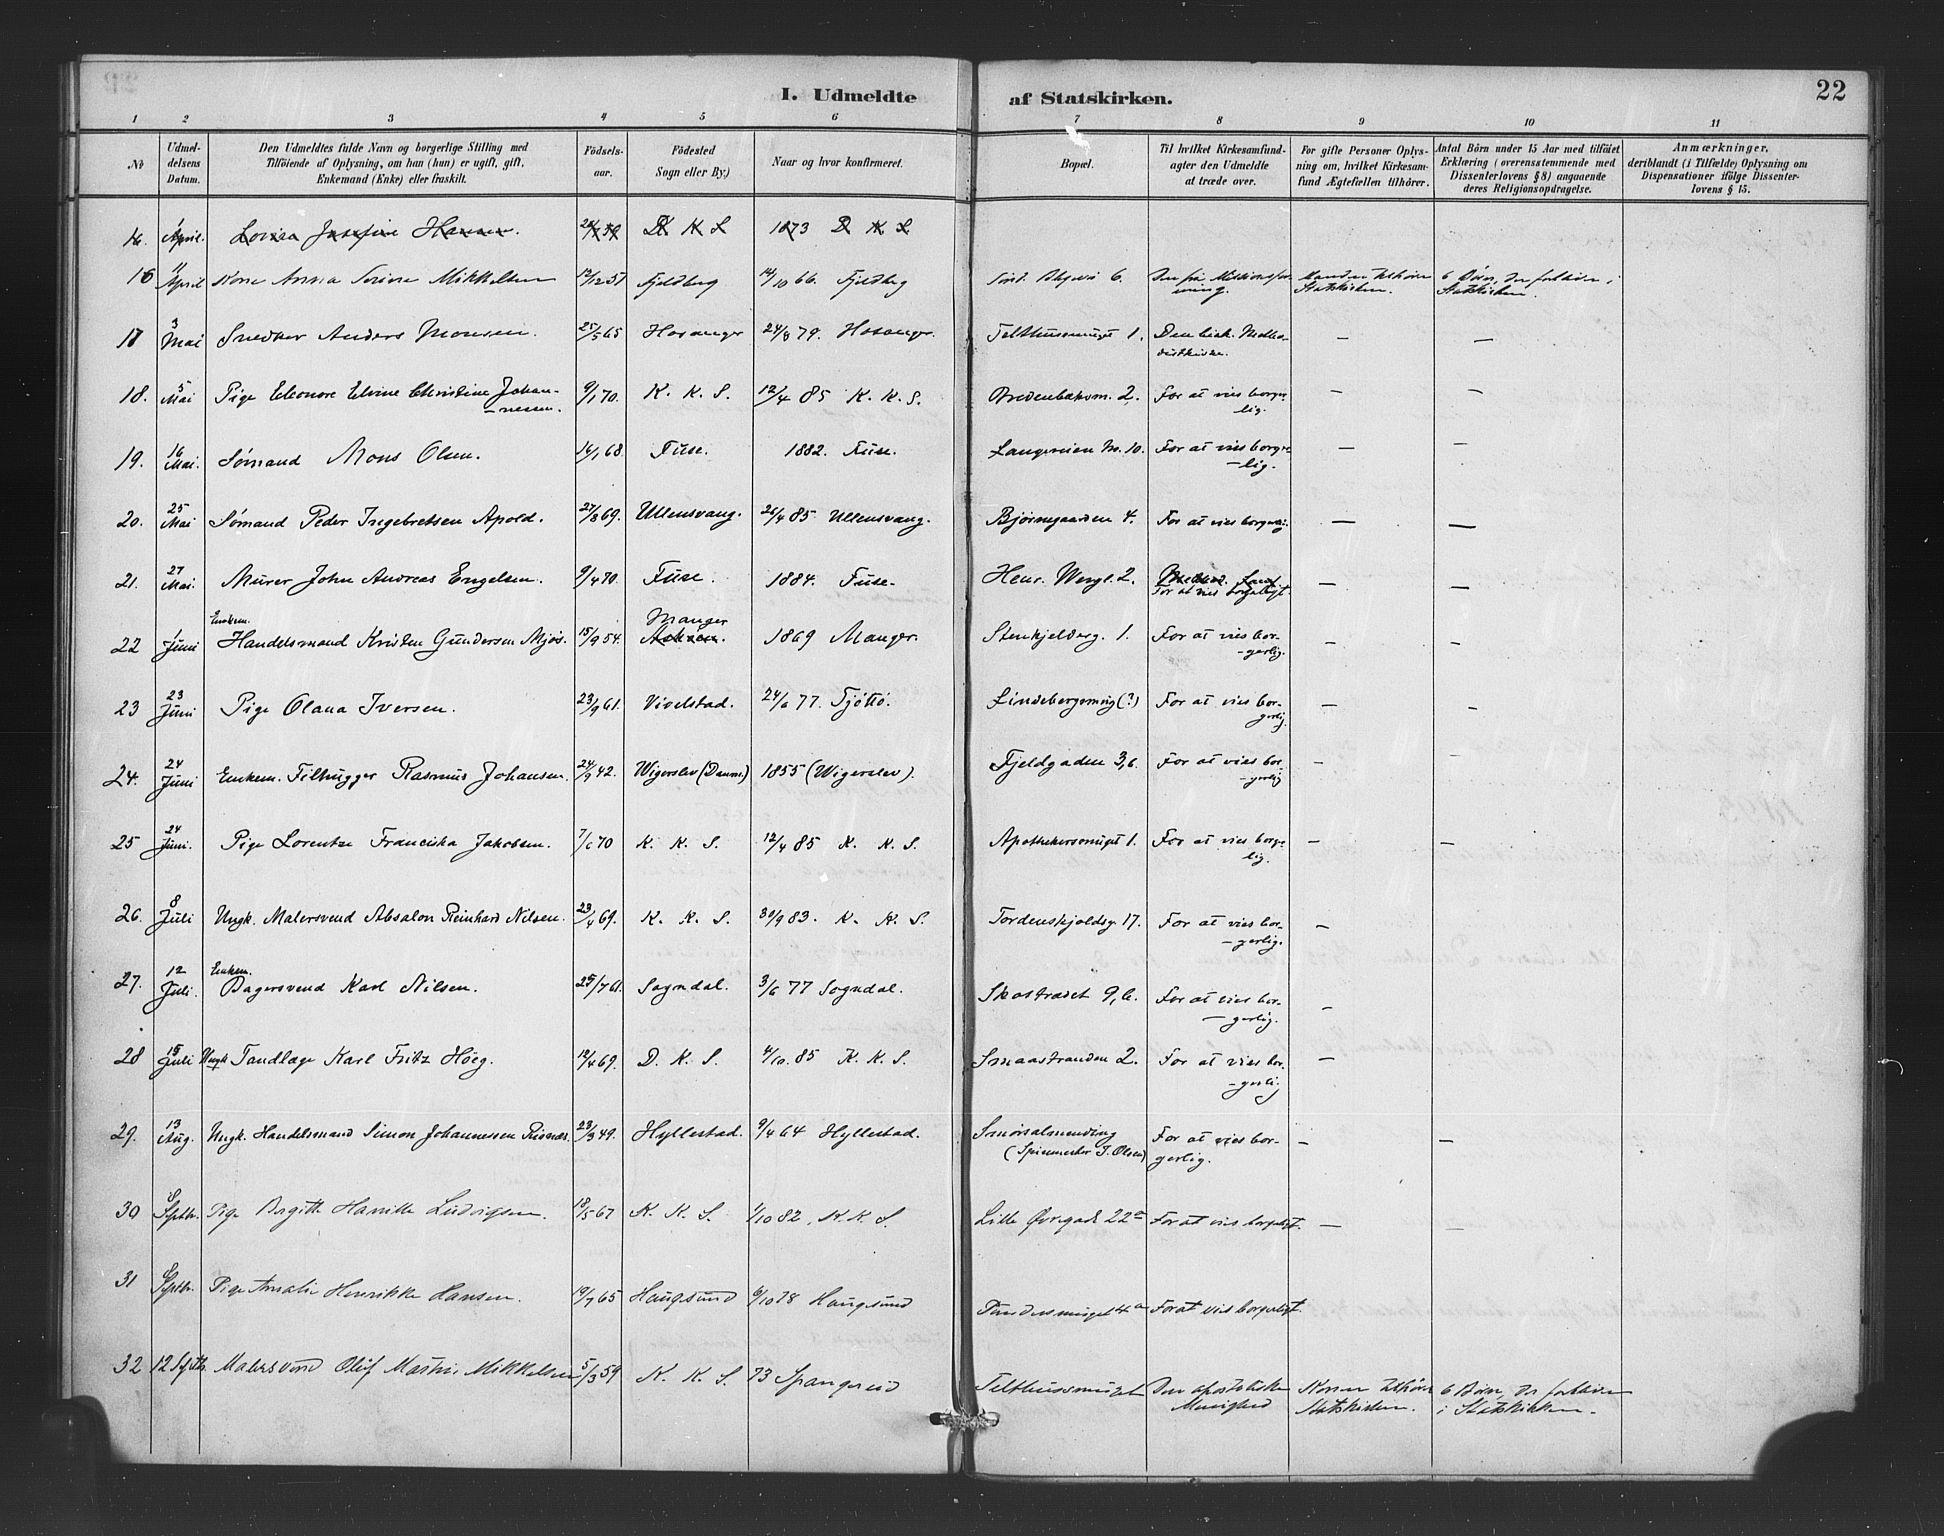 I. Udmeldte af Statskirken. 22
1 2 3 4 5 6 7 8 9 10 11
No
Udmel-
delsens
Datum.
Den Udmeldtes fulde Navn og borgerlige Stilling med
Tilføiende af Oplysning, om han (hun) er ugift, gift,
Enkemand (Enke) eller fraskilt.
Födsels-
aar.
Födested
Sogn eller By.)
Naar og hvor konfirmeret.
Bopæl.
Til hvilket Kirkesamfund-
agter den Udmeldte
at træde over.
For gifte Personer Oplys-
ning om, hvilket Kirkesam-
fund Ægtefællen tilhörer.
Antal Börn under 15 Aar med tilföiet
Erklæring (overensstemmende med
Dissenterlovens § 8) angaaende
deres Religionsopdragelse.
Anmærkninger,
deriblandt (i Tilfælde) Oplysning om
Dispensationer ifölge Dissenter-
lovens § 15.
16. April. Lovisa Josefine Hansen. D K S 1873 D K S
16 11 April Kone Anna Serine Mikkelsen 12/12 51 Fjeldberg 14/10 66. Fjeldberg 6. Den fri Missionsfor-
ening. Manden tilhører
Statskirken. 6 Børn, der forbliver i
Statskirken.
17 3 Mai Snedker Anders Monsen. 25/5 65 Hosanger 24/8 79. Hosanger. Telthussmuget 1. Den bisk. Metho-
distkirke. — —
18. 5 Mai Pige Eleonore Elvine Christine Johan-
-nessen. 9/1 70. K. K. S. 12/4 85 K. K. S. Bredenbaksm. 2. For at vies borger-
lig. — —
19. 16 Mai. Sømand Mons Olsen. 14/1 68. Fuse. 1882. Fuse. Langeveien No. 10. For at vies borger-
-lig. — —
20. 25 Mai Sømand Peder Ingebretsen Apold. 27/8 69. Ullensvang. 26/4 85 Ullensvang. Bjørnegaarden 4. For at vies borgerlig. — —
21. 27 Mai. Murer John Andreas Engelsen. 9/4 70. Fuse. 1884. Fuse. Henr. Wergl. 2. For at vies borgerligt. — —
22 1 Juni Enkem. Handelsmand Kristen Gundersen Mjøs. 15/9 54. Manger 1869 Manger. Stenkjelderg. 1. For at vies bor-
-gerlig. — —
23 23 Juni Pige Olana Iversen. 23/9 61. Vivelstad. 24/6 77. Tjøtto. Lindebergsmug (?) For at vies bor-
gerlig. — —
24. 24 Juni Enkem. Filhugger Rasmus Johansen. 24/9 42. Wigerslev (Danm.) 1855 (Wigerslev). Fjeldgaden 3,b. For at vies bor-
-gerlig — —
25 24 Juni. Pige Lorentze Franciska Jakobsen. 7/6 70 K. K. S. 12/4 85 K. K. S. Apothekersmuget 1. For at vies borger-
lig. — —
26. 8 Juli Ungk. Malersvend Absalon Reinhard Nilsen. 23/4 69. K. K. S. 30/9 83. K. K. S. Tordenskjoldsg. 17. For at vies bor-
-gerlig. —
27. 12 Juli. Enkem. Bagersvend Karl Nilsen. 25/7 61. Sogndal. 3/6 77 Sogndal. Skostrædet 9,b. For at vies bor-
-gerlig. —
28 15 Juli Ungk Tandlæge Karl Fritz Höeg. 12/4 69. D. K. S. 4/10. 85 K. K. S. Smaastranden 2. For at vies bor-
-gerlig —
29. 13 Aug. Ungk. Handelsmand Simon Johannessen Risnæs. 23/3 49. Hyllestad. 9/4 64 Hyllestad. Smørsalmending
(Spisevertsk. I. Olsen) For at vies bor-
gerlig. — —
30 8 Septbr. Pige Birgitte Henrikke Ludvigsen. 18/5 67 K. K. S. 1/10 82. K. K. S. Lille Øvregade 22a For at vies borgerligt. — —
31 8 Septbr. Pige Amalie Henrikke Hansen. 19/7 65 Haugesund 6/10 78 Haugesund 4a For at vies borgerligt.
32 12 Septb. Malersvend Oluf Martin Mikkelsen 5/3 59. K. K. S. 73 Spangereid Telthussmuget Den apostoliske
Menighed Konen tilhører
Statskirken. 6 Børn, der forbliver
i Statskirken.